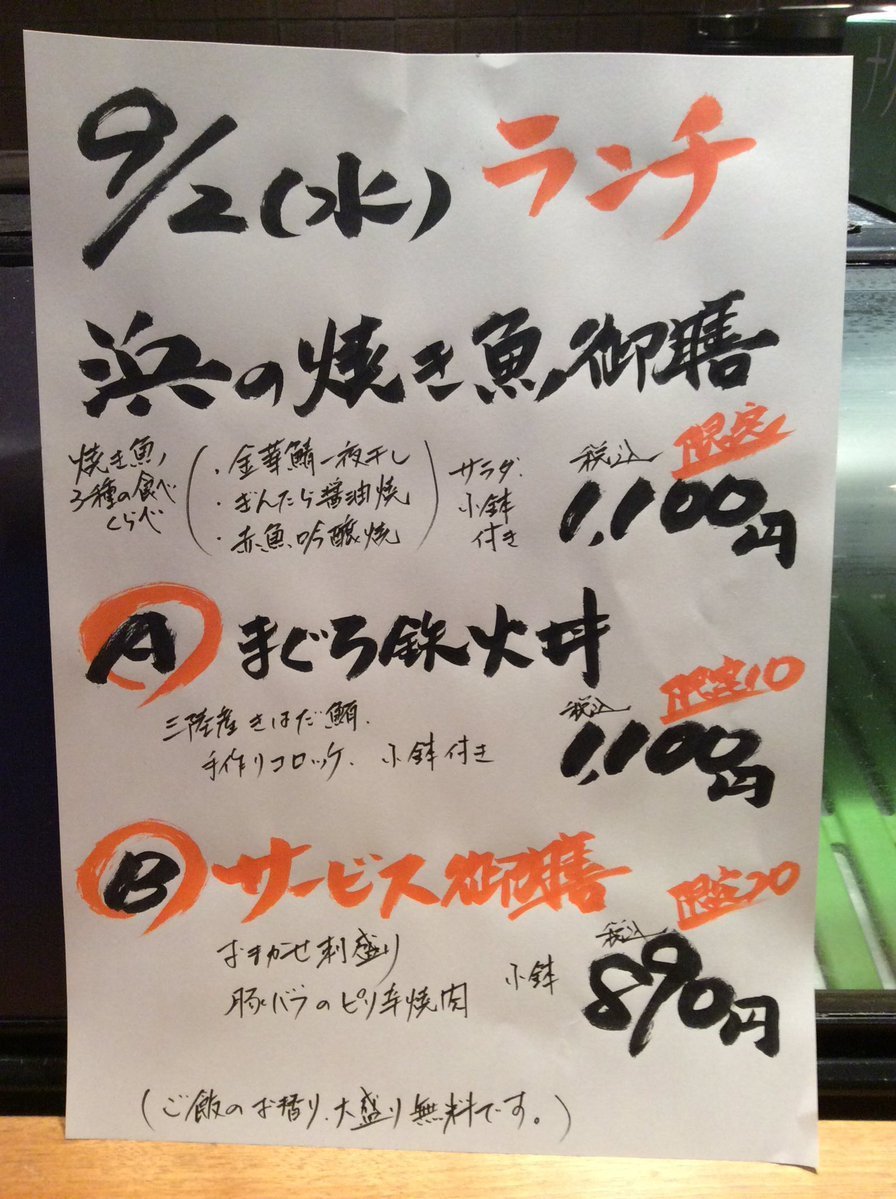 9/2(水) ランチ
浜の焼き魚御膳
焼き魚
3種の食べ
くらべ
・金華鯖一夜干し
・ぎんだら醤油焼
・赤魚吟醸焼
サラダ、
小鉢
付き
限定
税込
1,100円
A まぐろ鉄火丼
三陸産きはだ鮪、
手作りコロッケ、小鉢付き
限定10
税込
1,100円
B サービス御膳
おまかせ刺盛り
豚バラのピリ辛焼肉
小鉢
限定20
税込
890円
(ご飯のお替り、大盛り無料です。)